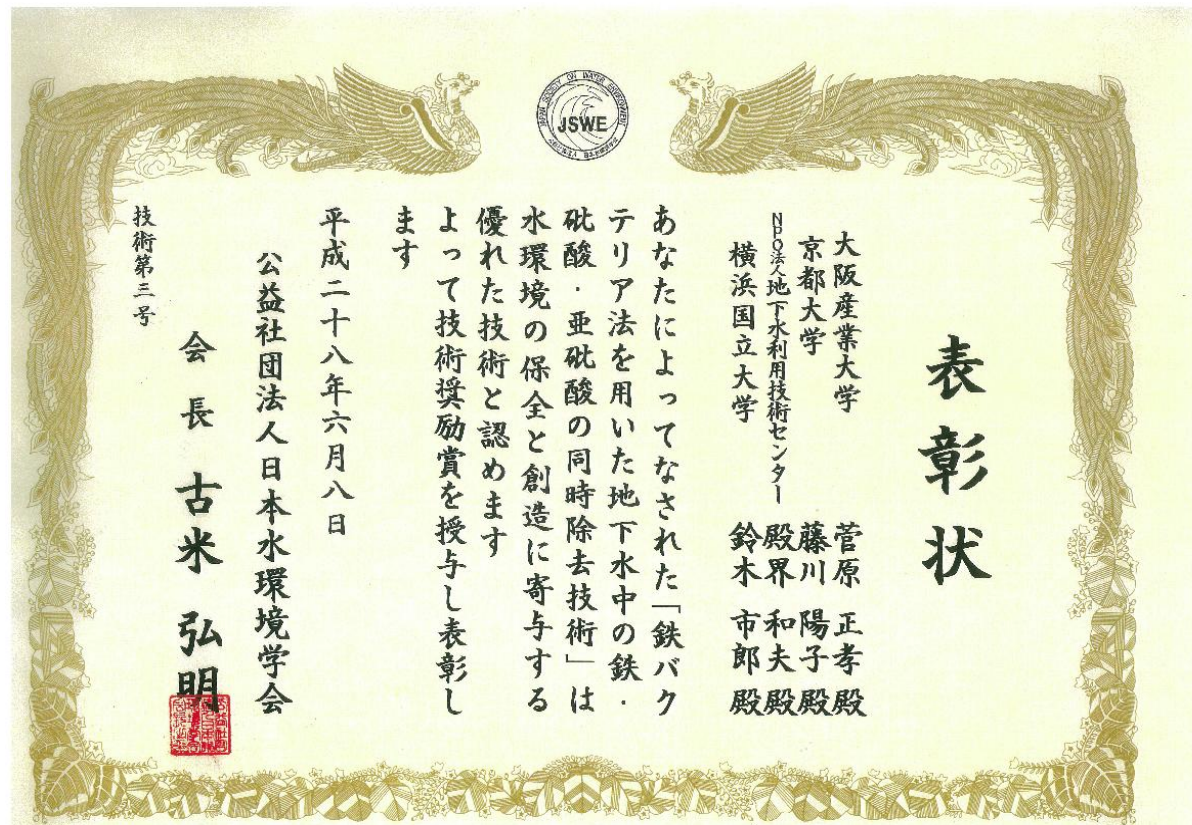 JAPAN SOCIETY ON WATER ENVIRONMENT
JSWE
表彰状
大阪産業大学 菅原 正孝 殿
京都大学 藤川 陽子 殿
NPO法人地下水利用技術センター 殿界 和夫 殿
横浜国立大学 鈴木 市郎 殿
あなたによってなされた「鉄バク
テリア法を用いた地下水中の鉄・
砒酸・亜砒酸の同時除去技術」は
水環境の保全と創造に寄与する
優れた技術と認めます
よって技術奨励賞を授与し表彰し
ます
平成二十八年六月八日
公益社団法人日本水環境学会
会長 古米 弘明
技術第三号